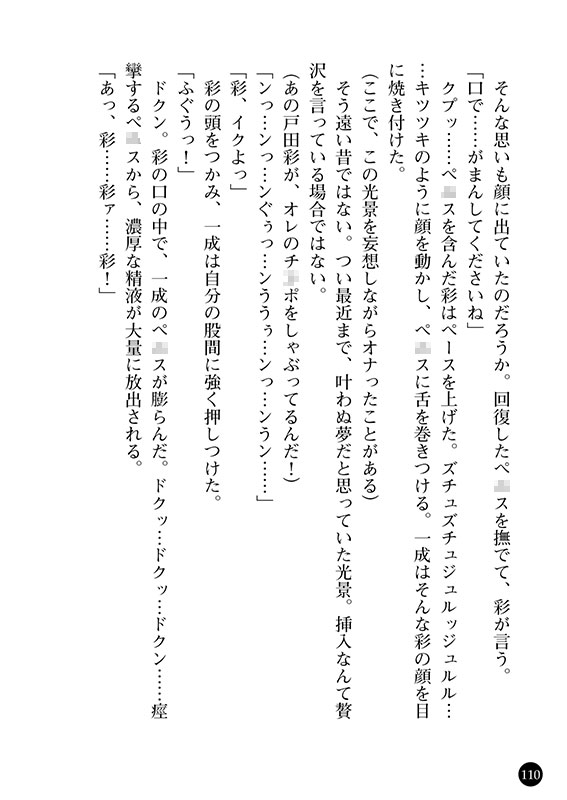 そんな思いも顔に出ていたのだろうか。回復したペスを撫でて、彩が言う。
「口で……がまんしてくださいね」
クプッ……ペスを含んだ彩はペースを上げた。ズチュズチュジュルッジュルル…
…キツツキのように顔を動かし、ペスに舌を巻きつける。一成はそんな彩の顔を目
に焼き付けた。
(ここで、この光景を妄想しながらオナったことがある)
そう遠い昔ではない。つい最近まで、叶わぬ夢だと思っていた光景。挿入なんて贅
沢を言っている場合ではない。
(あの戸田彩が、オレのチポをしゃぶってるんだ!)
「ンっ…ンっ…ンぐぅっ…ンううぅ…ンっ…ンうン……」
「彩、イクよっ」
彩の頭をつかみ、一成は自分の股間に強く押しつけた。
「ふぐうっ!」
ドクン。彩の口の中で、一成のペスが膨らんだ。ドクッ…ドクッ…ドクン……痙
攣するペスから、濃厚な精液が大量に放出される。
「あっ、彩……彩ァ……彩!」
110